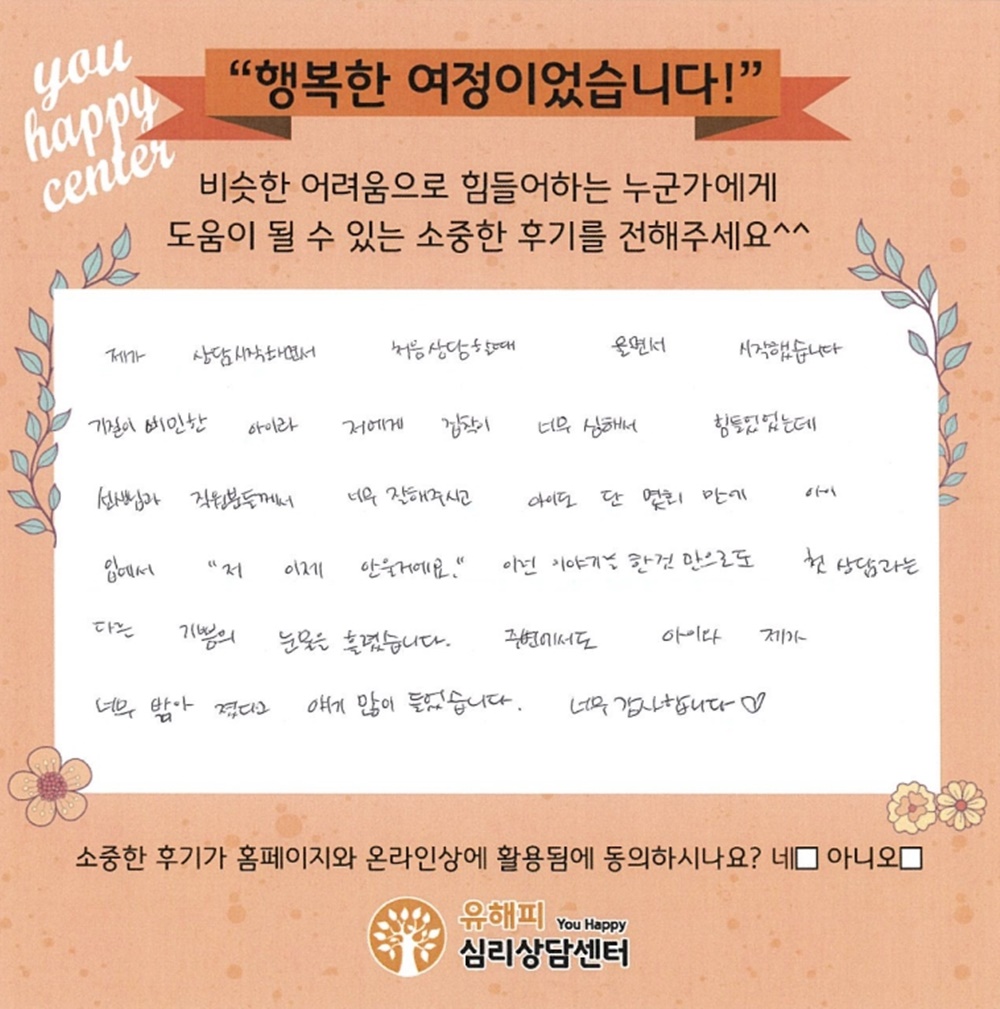 you
happy
center
“행복한 여정이었습니다!”
비슷한 어려움으로 힘들어하는 누군가에게
도움이 될 수 있는 소중한 후기를 전해주세요^^
제가 상담시작하면서 처음 상담할때 울면서 시작했습니다
기질이 예민한 아이라 저에게 집착이 너무 심해서 힘들었었는데
선생님과 직원분들께서 너무 잘해주시고 아이도 단 몇회 만에 아이
입에서 "저 이제 안울거에요." 이런 이야기를 한것 만으로도 첫 상담과는
다른 기쁨의 눈물을 흘렸습니다. 주변에서도 아이다 제가
너무 밝아 졌다고 얘기 많이 들었습니다. 너무 감사합니다 ♡
소중한 후기가 홈페이지와 온라인상에 활용됨에 동의하시나요? 네□ 아니오□
유해피 You Happy
심리상담센터